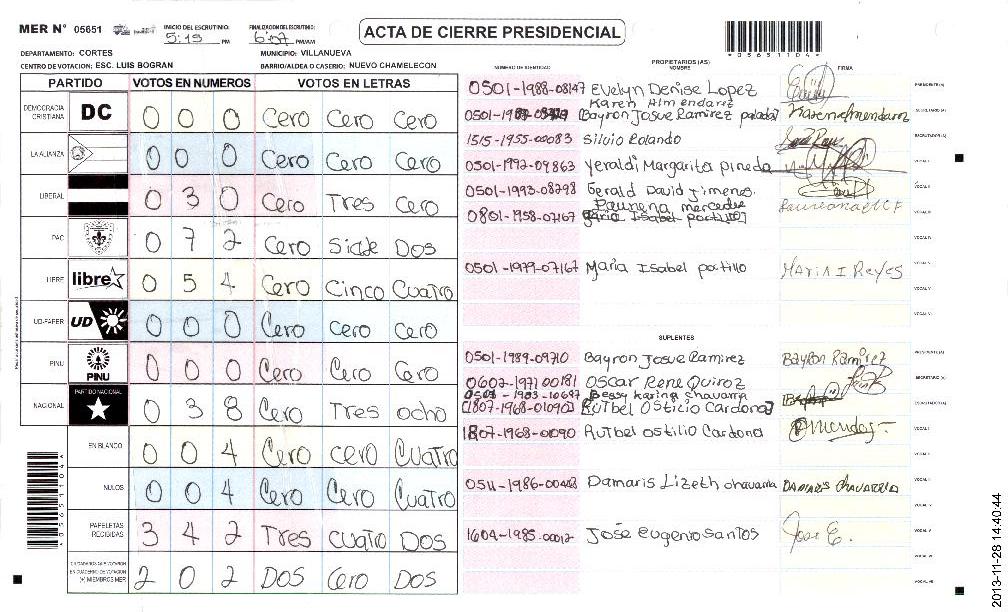 MER N° 05651
INICIO DEL ESCRUTINIO: 5:19 PM
FINALIZACION DEL ESCRUTINIO: 6:07 PM/AM
ACTA DE CIERRE PRESIDENCIAL
*05651104*
DEPARTAMENTO: CORTES
MUNICIPIO: VILLANUEVA
CENTRO DE VOTACION: ESC. LUIS BOGRAN
BARRIO/ALDEA O CASERIO: NUEVO CHAMELECON
PARTIDO VOTOS EN NUMEROS VOTOS EN LETRAS
DEMOCRACIA CRISTIANA DC 0 0 0 Cero Cero Cero
LA ALIANZA 0 0 0 Cero Cero Cero
LIBERAL 0 3 0 Cero Tres Cero
PAC 0 7 2 Cero Siete Dos
LIBRE libre 0 5 4 Cero Cinco Cuatro
UD-FAPER UD 0 0 0 Cero cero Cero
PINU PINU 0 0 0 Cero Cero Cero
NACIONAL PARTIDO NACIONAL 0 3 8 Cero Tres ocho
EN BLANCO 0 0 4 Cero cero Cuatro
NULOS 0 0 4 Cero Cero Cuatro
PAPELETAS RECIBIDAS 3 4 2 Tres cuatro Dos
CIUDADANOS QUE VOTARON EN CUADERNO DE VOTACION (+) MIEMBROS MER 2 0 2 DOS Cero DOS
PROPIETARIOS (AS)
NUMERO DE IDENTIDAD NOMBRE FIRMA
0501-1988-08147 Evelyn Denise Lopez PRESIDENTE(A)
Karen Almendarez
Bayron Josue Ramirez Karen Almendarez SECRETARIO(A)
1515-1955-00083 Silvio Rolando ESCRUTADOR(A)
0501-1992-09863 Yeraldi Margarita pineda VOCAL I
0501-1993-08298 Gerald David Jimenes VOCAL II
mercedes
0801-1958-07167 Maria Isabel portillo VOCAL III
VOCAL IV
0501-1979-07167 Maria Isabel portillo Maria I Reyes VOCAL V
VOCAL VI
SUPLENTES
0501-1989-09710 Bayron Josue Ramirez Bayron Ramirez PRESIDENTE(A)
0602-1971 00181 Oscar Rene Quiroz SECRETARIO(A)
Bessy Karina chavarria
Rutbel Osticio Cardona ESCRUTADOR(A)
1807-1968-01090 Rutbel ostilio Cardona VOCAL I
Damaris Lizeth chavarria DAMARIS CHAVARRIA
1604-1985-00012 José Eugenio Santos Jose E.
*05651104*
2013-11-28 14:40:44